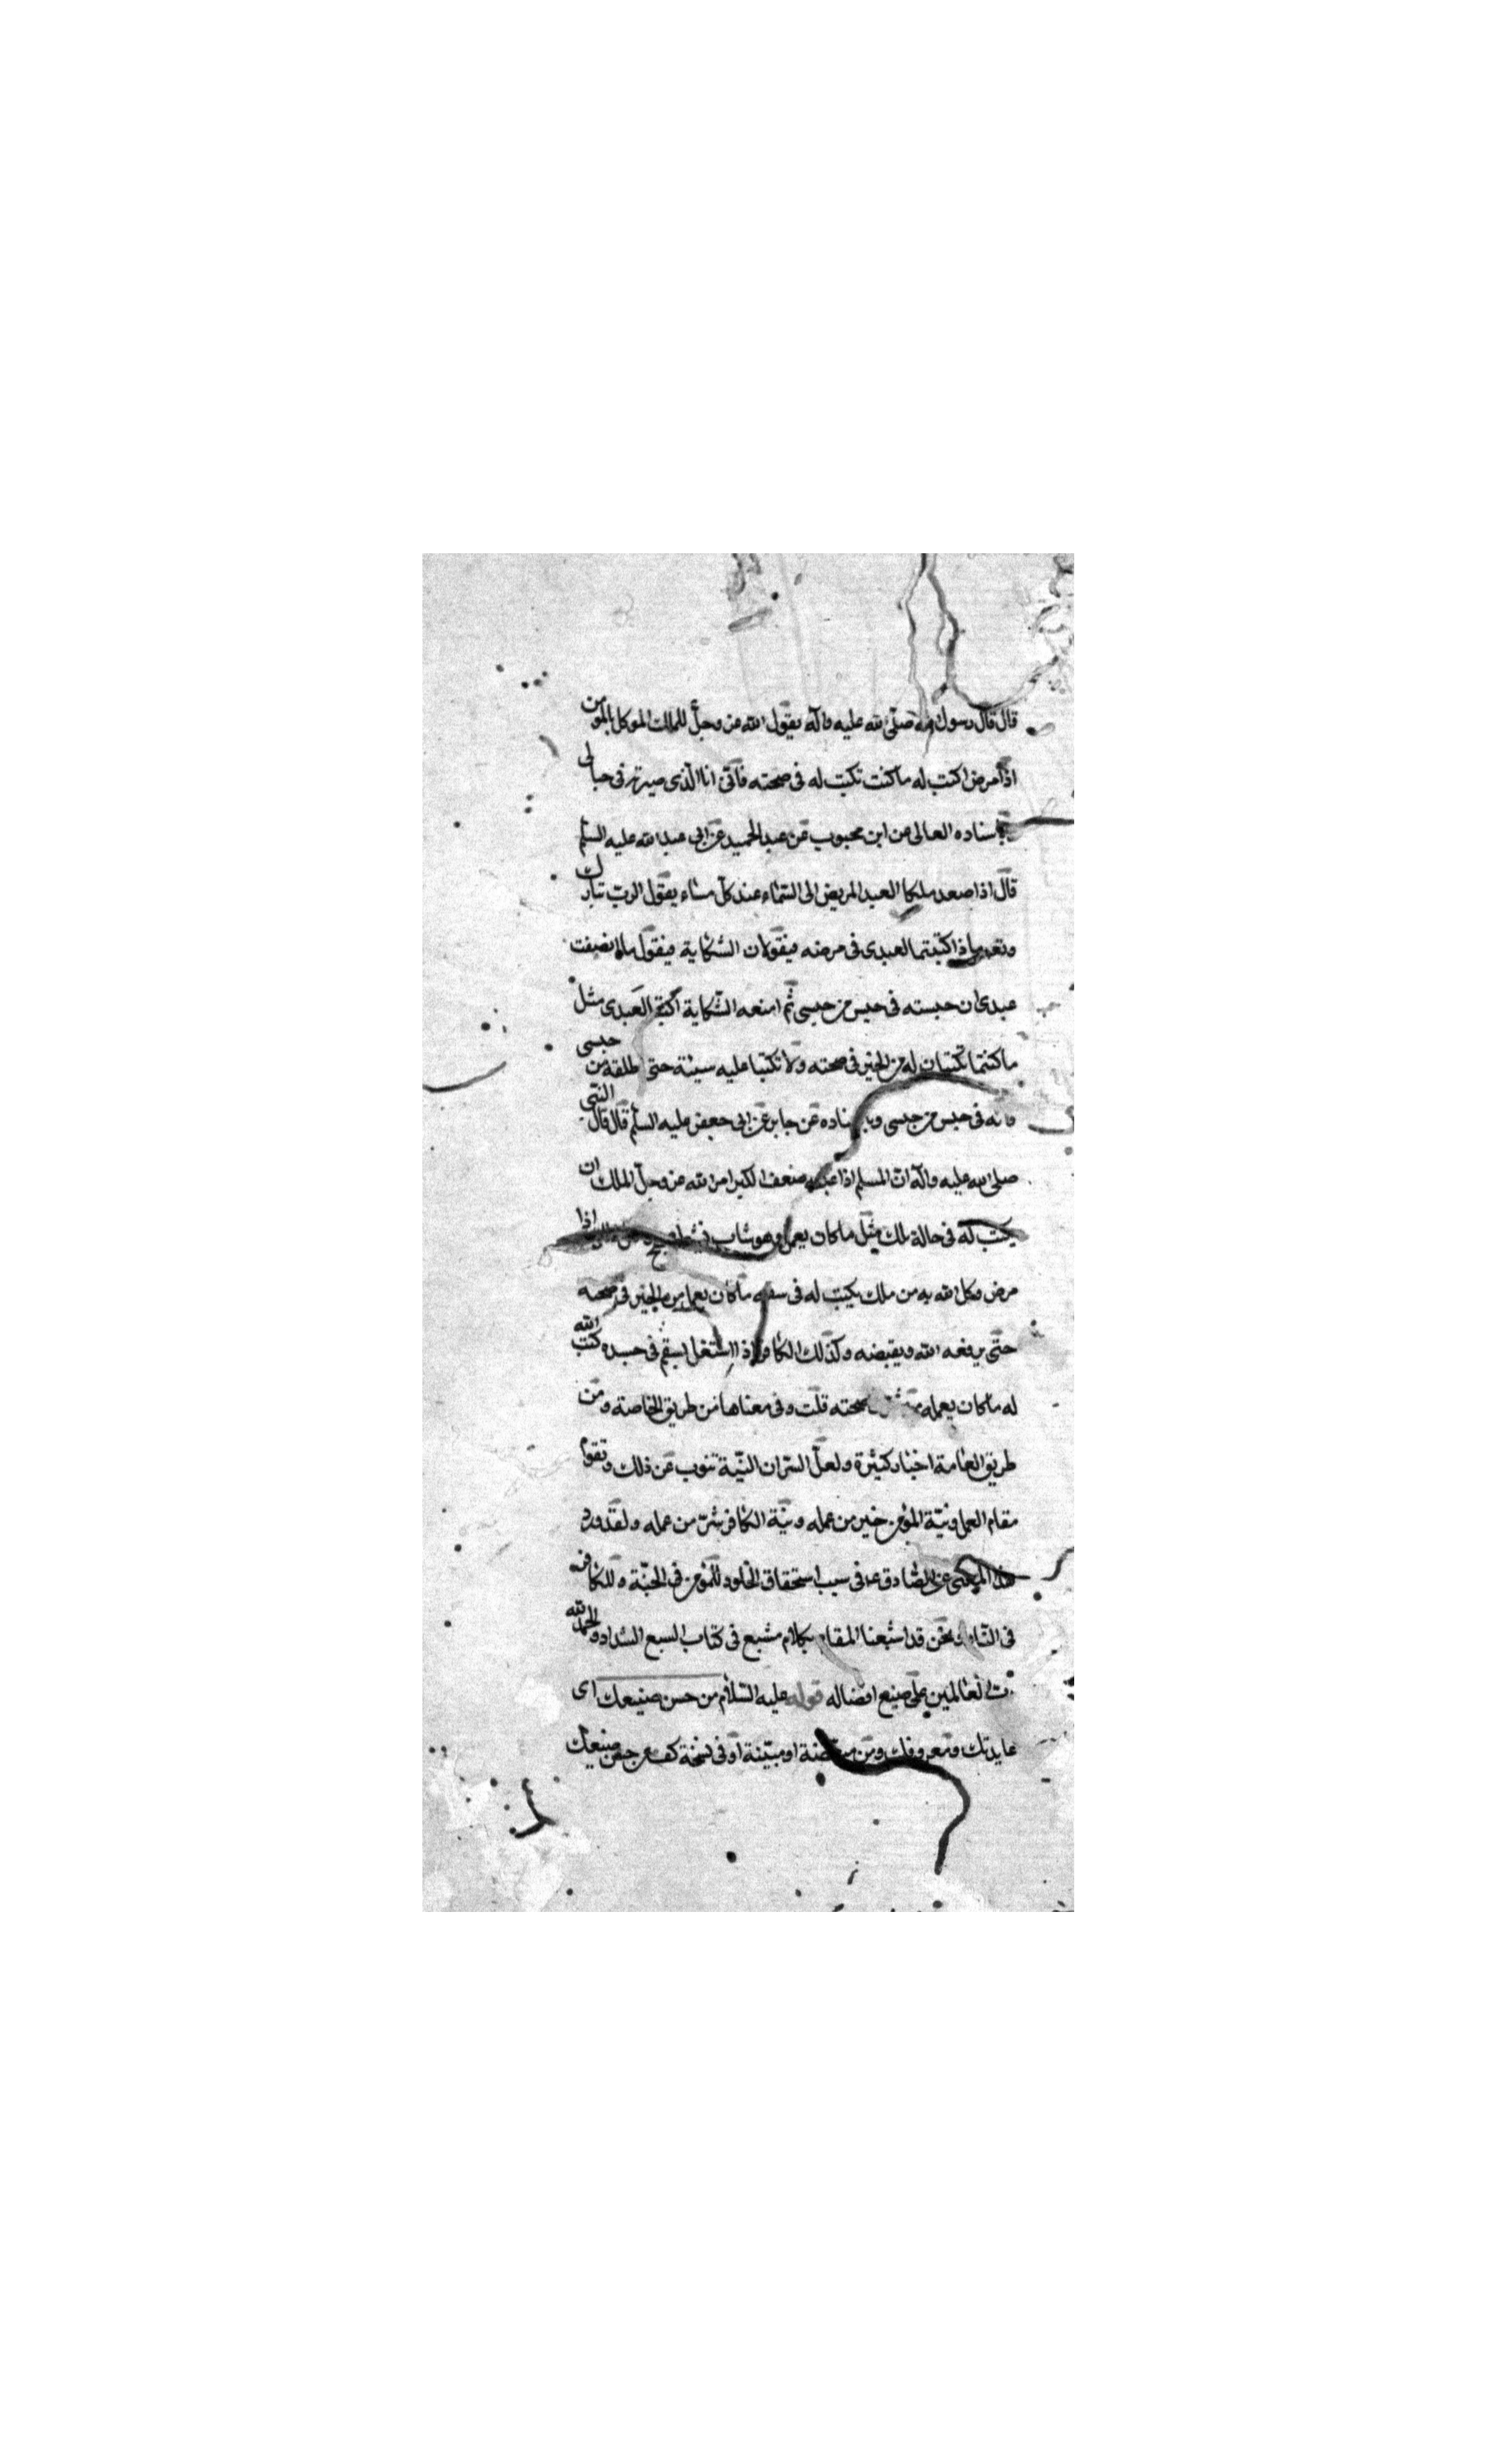 قال قال رسول الله صلّى الله عليه وآله يقول الله عز وجلّ للملك الموكل بالمؤمن
اذا مرض اكتب له ما كنت تكتب له فى صحته فانّى انا الّذى صيرته فى حبالى
باسناده العالى عن ابن محبوب عن عبد الحميد عن ابى عبد الله عليه السلم
قال اذا صعد ملكا العبد المريض الى السّماء عند كلّ مساء يقول الربّ تبارك
وتعالى ماذا كتبتما لعبدى فى مرضه فيقولان الشكاية فيقول ما انصفت
عبدى ان حبسته فى حبس من حبسى ثم امنعه الشّكاية اكتبا لعبدى مثل
ما كنتما تكتبان له من الخير فى صحته ولا تكتبا عليه سيئة حتى اطلقه من حبسى
فانه فى حبس من حبسى وباسناده عن جابر عن ابى جعفر عليه السلم قال قال النبى
صلى الله عليه وآله انّ المسلم اذا ضعف الكبر امر الله عز وجلّ الملك ان
يكتب له فى حالة تلك مثل ما كان يعمل وهو شاب نشط صحيح اذا
مرض وكل الله به من ملك يكتب له فى سقمه ما كان يعمل من الخير فى صحته
حتّى يرفعه الله ويقبضه وكذلك الكافر اذا اشتغل بسقم فى جسده كتب الله
له ما كان يعمله صحته قلت وفى معناها من طريق الخاصة ومن
طريق العامة اخبار كثيرة ولعلّ السّر ان النيّة تنوب عن ذلك وتقوم
مقام العمل ونيّة المؤمن خير من عمله ونيّة الكافر شرّ من عمله ولقد ورد
هذا المعنى عن الصّادق ع فى سبب استحقاق الخلود للمؤمن فى الجنّة وللكافر
فى النّار ونحن قد اشبعنا المقام بكلام مشبع فى كتاب السبع الشداد والحمد لله
رب العالمين على صنيع افضاله قوله عليه السّلام من حسن صنيعك اى
عايدتك ومعروفك ومن او مبيّنة او فى نسخة كف ع صنيعك